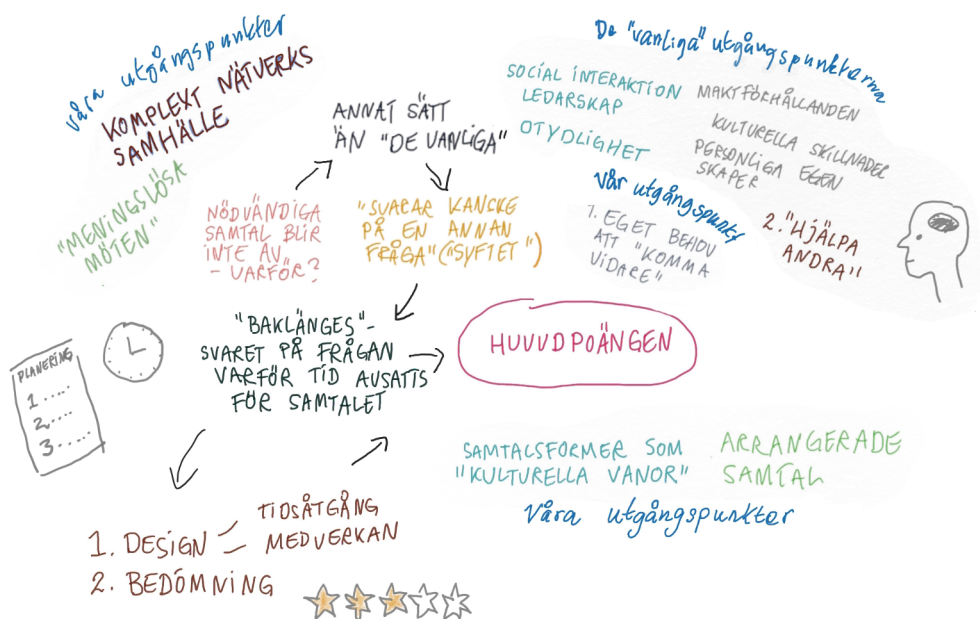 våra utgångspunkter
KOMPLEXT NÄTVERKS
SAMHÄLLE
"MENINGSLÖSA
MÖTEN"
ANNAT SÄTT
ÄN "DE VANLIGA"
NÖDVÄNDIGA
SAMTAL BLIR
INTE AV
- VARFÖR?
"SVARAR KANSKE
PÅ EN ANNAN
FRÅGA" ("SYFTET")
De "vanliga" utgångspunkterna
SOCIAL INTERAKTION
LEDARSKAP
OTYDLIGHET
MAKTFÖRHÅLLANDEN
KULTURELLA SKILLNADER
PERSONLIGA EGEN
SKAPER
Vår utgångspunkt
1. EGET BEHOV
ATT "KOMMA
VIDARE"
2. "HJÄLPA
ANDRA"
PLANERING
1.....
2....
3.....
"BAKLÄNGES"-
SVARET PÅ FRÅGAN
VARFÖR TID AVSATTS
FÖR SAMTALET
HUVUDPOÄNGEN
SAMTALSFORMER SOM
"KULTURELLA VANOR"
ARRANGERADE
SAMTAL
Våra utgångspunkter
1. DESIGN
TIDSÅTGÅNG
MEDVERKAN
2. BEDÖMNING